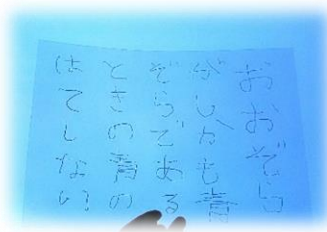 おおぞら
がしかも青
ぞらである
ときの青の
はてしない